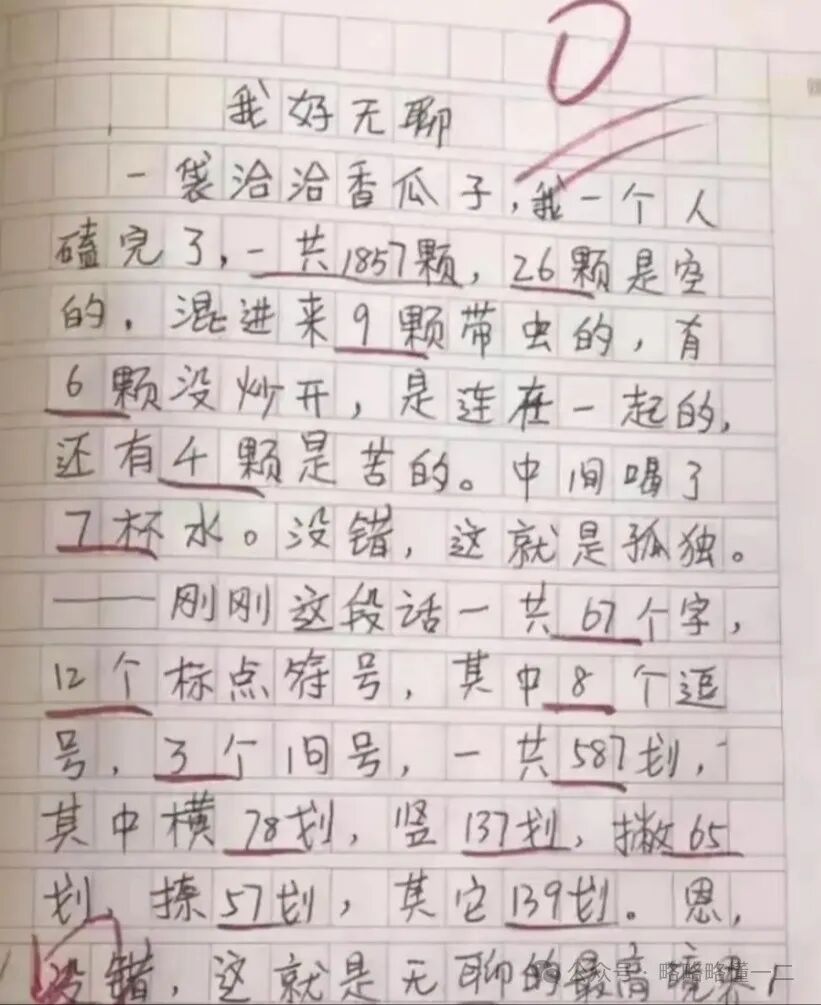 0
我好无聊
一袋洽洽香瓜子,我一个人
磕完了,一共1857颗,26颗是空
的,混进来9颗带虫的,有
6颗没炒开,是连在一起的,
还有4颗是苦的。中间喝了
7杯水。没错,这就是孤独。
——刚刚这段话一共67个字,
12个标点符号,其中8个逗
号,3个间号,一共587划,
其中横78划,竖137划,撇65
划,捺57划,其它139划。恩,
没错,这就是无聊的最高境界!
公众号·略略略懂一二